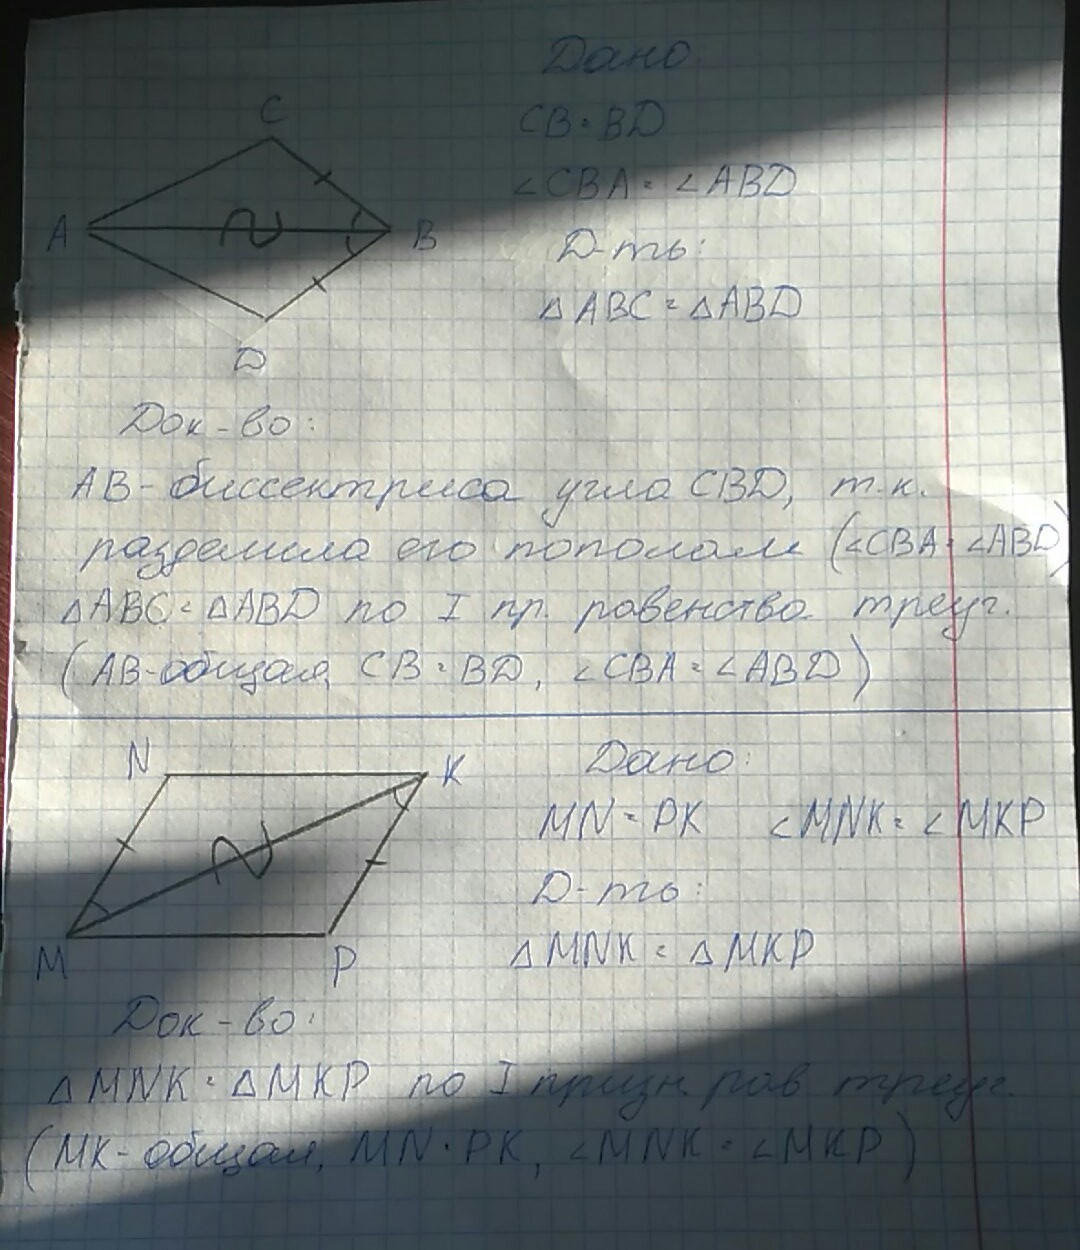 Дано
C
CB=BD
∠CBA=∠ABD
A
B
Д-ть:
△ABC=△ABD
D
Док-во:
AB-биссектриса угла CBD, т.к.
разделила его пополам (∠CBA=∠ABD)
△ABC=△ABD по I пр. равенства треуг.
(AB-общая, CB=BD, ∠CBA=∠ABD)
N
K
Дано:
MN=PK ∠MNK=∠MKP
Д-ть:
M
P
△MNK=△MKP
Док-во:
△MNK=△MKP по I призн. рав треуг.
(MK-общая, MN=PK, ∠MNK=∠MKP)